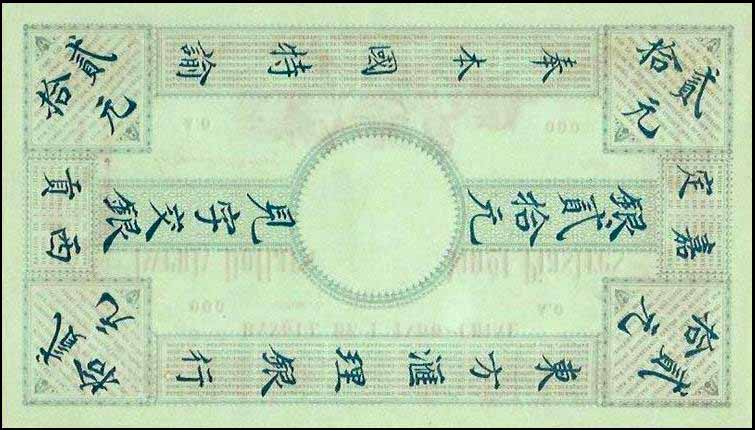 貳拾元
嘉定
貳拾元
東方滙理銀行
銀貳拾元
見字交銀
奉本國特諭
貳拾元
西貢
貳拾元